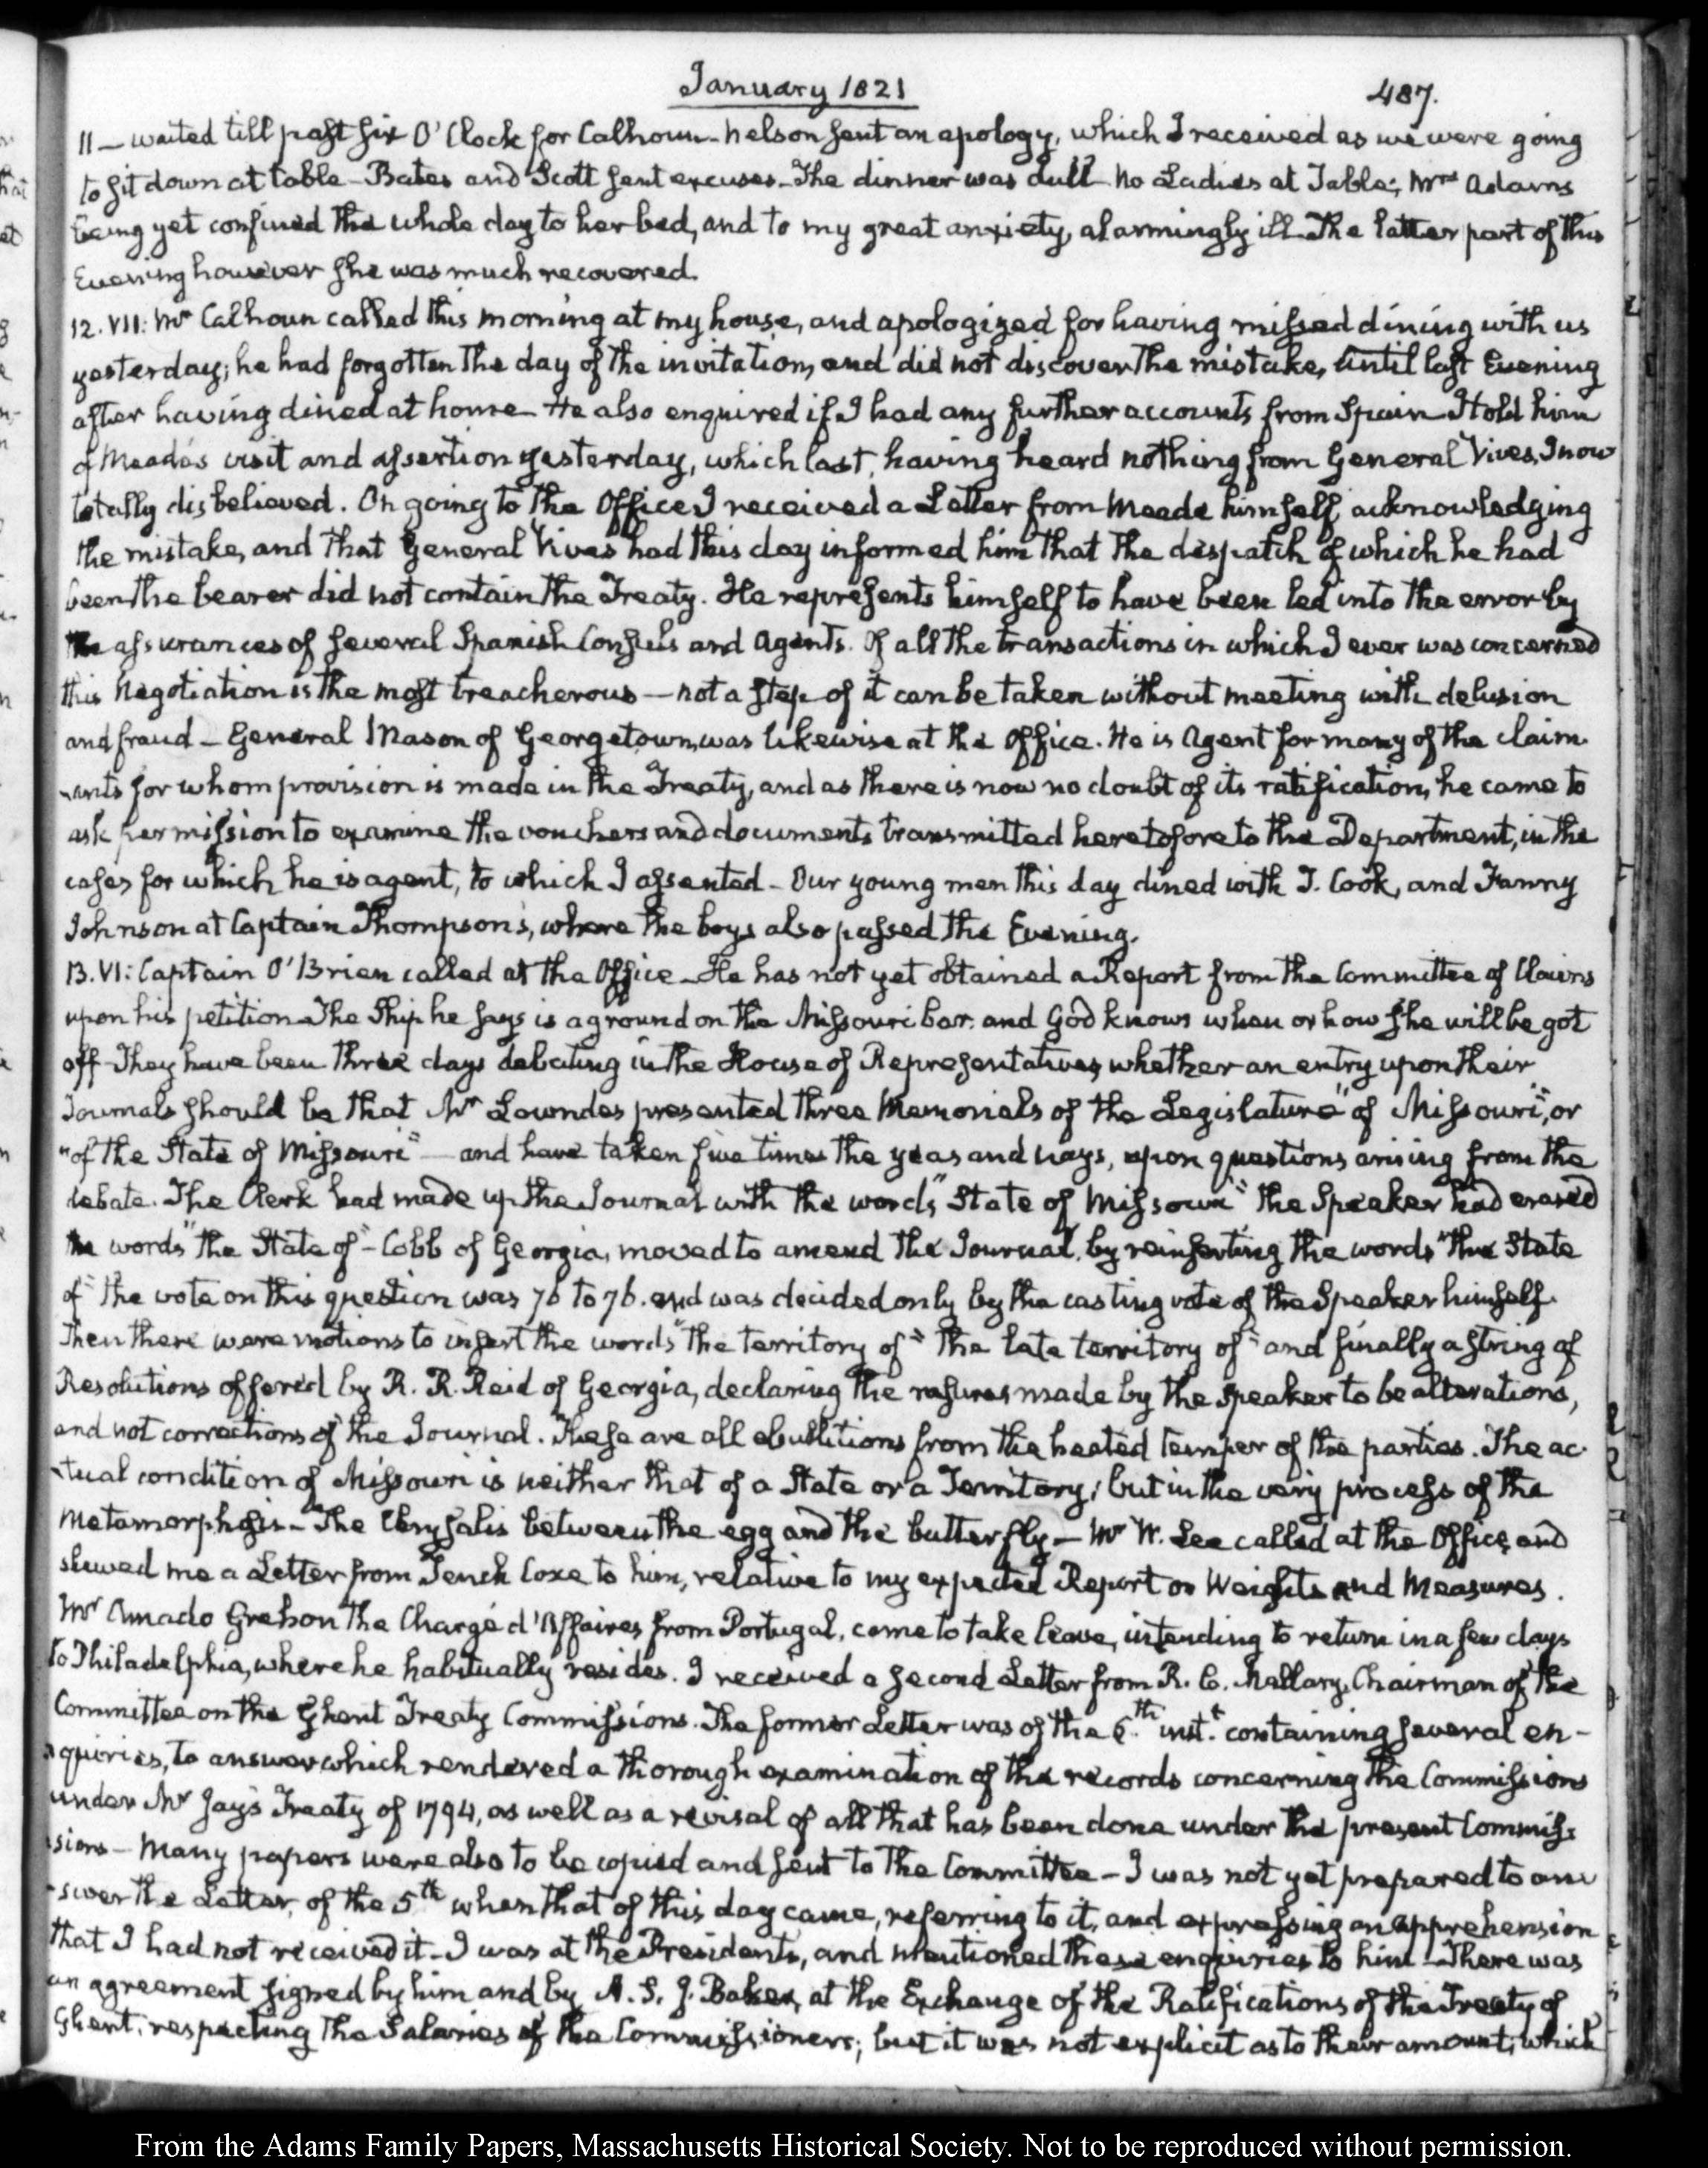 January 1821
487.
11 — waited till past six O'Clock for Calhoun — Nelson sent an apology, which I received as we were going
to sit down at table — Bates and Scott sent excuses — The dinner was dull — No Ladies at Table; Mrs Adams
being yet confined the whole day to her bed, and to my great anxiety, alarmingly ill — The latter part of this
Evening however she was much recovered.
12. VII: Mr Calhoun called this morning at my house, and apologized for having missed dining with us
yesterday; he had forgotten the day of the invitation, and did not discover the mistake, until last Evening
after having dined at home — He also enquired if I had any further accounts from Spain — I told him
of Meade's visit and assertion yesterday, which last, having heard nothing from General Vives, I now
totally disbelieved. On going to the Office I received a Letter from Meade himself, acknowledging
the mistake, and that General Vives had this day informed him that the despatch of which he had
been the bearer did not contain the Treaty. He represents himself to have been led into the error by
the assurances of several Spanish Consuls and Agents. Of all the transactions in which I ever was concerned
this Negotiation is the most treacherous — not a step of it can be taken without meeting with delusion
and fraud — General Mason of Georgetown, was likewise at the Office. He is Agent for many of the claim-
-ants for whom provision is made in the Treaty, and as there is now no doubt of its ratification, he came to
ask permission to examine the vouchers and documents transmitted heretofore to the Department, in the
cases for which he is agent, to which I assented — Our young men this day dined with J. Cook, and Fanny
Johnson at Captain Thompson's, where the boys also passed the Evening.
13. VI: Captain O'Brien called at the Office — He has not yet obtained a Report from the Committee of Claims
upon his petition — The Ship he says is aground on the Missouri bar. and God knows when or how she will be got
off — They have been three days debating in the House of Representatives, whether an entry upon their
Journals should be that Mr Lowndes presented three Memorials of the Legislature "of Missouri", or
"of the State of Missouri" — and have taken five times the yeas and nays, upon questions arising from the
debate. The Clerk had made up the Journal with the words, "State of Missouri" the Speaker had erased
the words "the State of" — Cobb of Georgia, moved to amend the Journal, by reinserting the words "the State
of" the vote on this question was 76 to 76. and was decided only by the casting vote of the Speaker himself.
Then there were motions to insert the words "the territory of" "the late territory of" and finally a string of
Resolutions offered by R. R. Reid of Georgia, declaring the rasures made by the Speaker to be alterations,
and not corrections of the Journal. These are all ebullitions from the heated temper of the parties. The ac-
-tual condition of Missouri is neither that of a State or a Territory; but in the very process of the
Metamorphosis — The Chrysalis between the egg and the butterfly — Mr W. Lee called at the Office, and
shewed me a Letter from Tench Coxe to him, relative to my expected Report on Weights and Measures.
Mr Amado Grehon the Chargé d'Affaires from Portugal, came to take leave, intending to return in a few days
to Philadelphia, where he habitually resides. I received a second Letter from R. C. Mallary, Chairman of the
Committee on the Ghent Treaty Commissions. The former Letter was of the 5th inst. containing several en-
-quiries, to answer which rendered a thorough examination of the records concerning the Commissions
under Mr Jay's Treaty of 1794, as well as a revisal of all that has been done under the present Commis-
-sions — Many papers were also to be copied and sent to the Committee — I was not yet prepared to an-
-swer the Letter, of the 5th when that of this day came, referring to it, and expressing an apprehension
that I had not received it — I was at the President's, and mentioned these enquiries to him — There was
an agreement signed by him and by A. S. J. Baker, at the Exchange of the Ratifications of the Treaty of
Ghent, respecting the Salaries of the Commissioners; but it was not explicit as to their amount; which
From the Adams Family Papers, Massachusetts Historical Society. Not to be reproduced without permission.